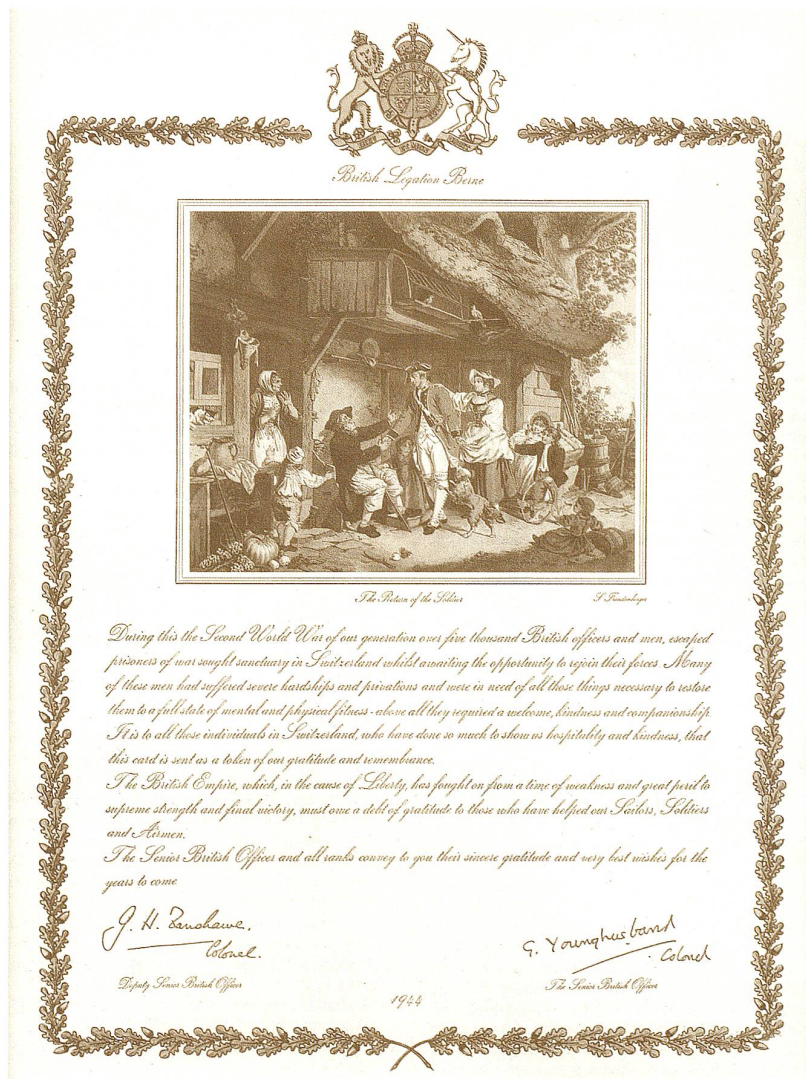 British Legation Berne
The Return of the Soldier
S. Freudenberger
During this the Second World War of our generation over five thousand British officers and men, escaped
prisoners of war sought sanctuary in Switzerland whilst awaiting the opportunity to rejoin their forces. Many
of these men had suffered severe hardships and privations and were in need of all those things necessary to restore
them to a full state of mental and physical fitness - above all they required a welcome, kindness and companionship.
It is to all those individuals in Switzerland, who have done so much to show us hospitality and kindness, that
this card is sent as a token of our gratitude and remembrance.
The British Empire, which, in the cause of Liberty, has fought on from a time of weakness and great peril to
supreme strength and final victory, must owe a debt of gratitude to those who have helped our Sailors, Soldiers
and Airmen.
The Senior British Officer and all ranks convey to you their sincere gratitude and very best wishes for the
years to come
J. H.
Colonel.
Deputy Senior British Officer
G. Younghusband
Colonel
The Senior British Officer
1944